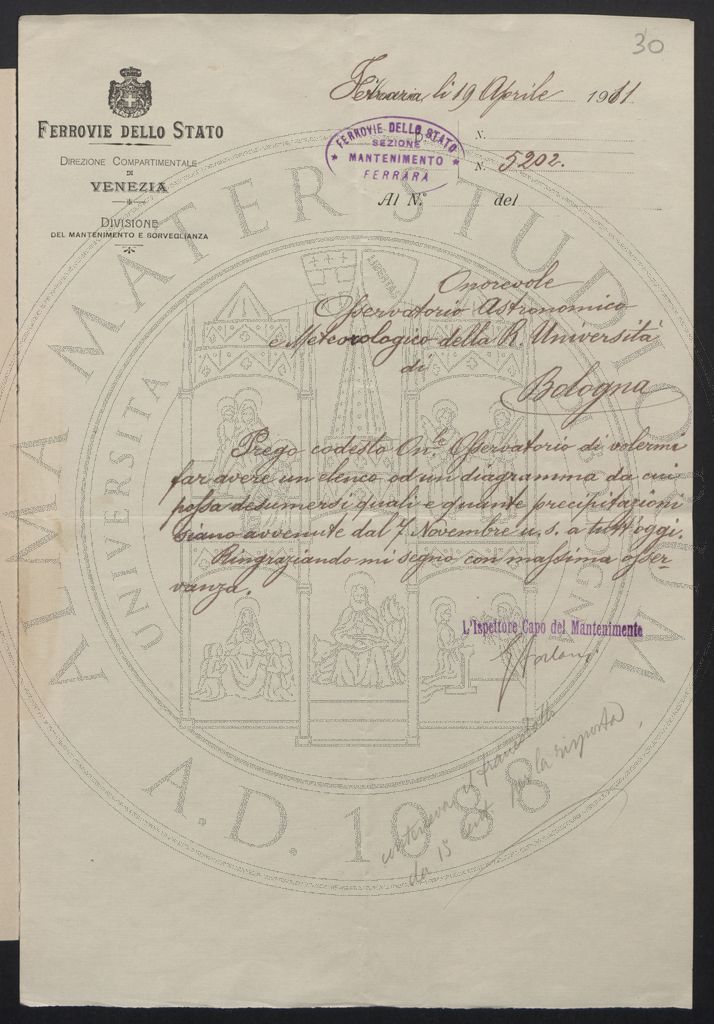 30
FERROVIE DELLO STATO
DIREZIONE COMPARTIMENTALE
DI
VENEZIA
DIVISIONE
DEL MANTENIMENTO E SORVEGLIANZA
Ferrara, li 19 Aprile 1911
FERROVIE DELLO STATO
SEZIONE
MANTENIMENTO
FERRARA
N.
N. 5202.
Al N.° del
Onorevole
Osservatorio Astronomico
e Meteorologico della R. Università
di
Bologna
Prego codesto On.le Osservatorio di volermi
far avere un elenco od un diagramma da cui
possa desumersi quali e quante precipitazioni
siano avvenute dal 7 Novembre u. s. a tutt'oggi.
Ringraziando mi segno con massima osser
vanza.
L'Ispettore Capo del Mantenimento
conteneva il francobollo
da 15 cent per la risposta
ALMA MATER STUDIORUM
UNIVERSITA
LIBERTAS
A.D. 1088